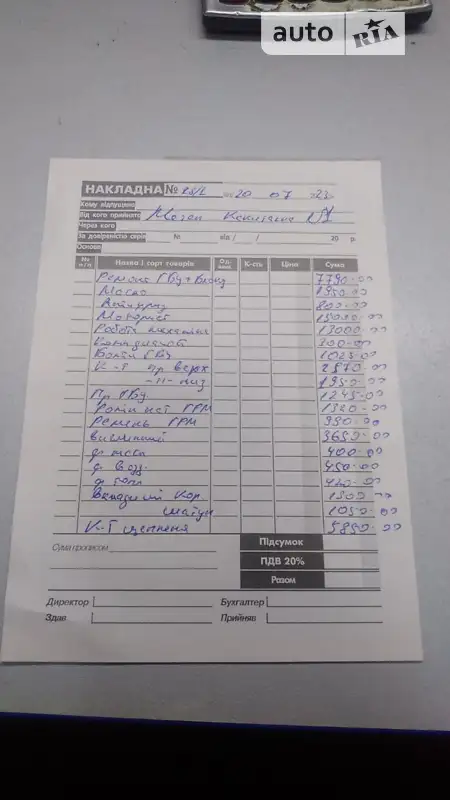 auto RIA
НАКЛАДНА № 28/2 від 20 07 23
Кому відпущено
Від кого прийнято Меган
Через кого
За довіреністю серія № від / / 20 р.
Основа
№ п/п Назва і сорт товарів Од. вим. К-сть Ціна Сума
Ремонт ГБУ + Блока 7790-00
Масло 1950-00
Антифриз 800-00
Моторист
Работа 13000-00
300-00
Болты ГБУ 1025-00
К-т пр верх 2870-00
-//- низ 1950-00
Пр ГБУ 1245-00
Ролик нат ГРМ 1320-00
Ремень ГРМ 990-00
3650-00
ф масл 400-00
ф возд. 450-00
ф топл 420-00
Вкладыши кор 1500-00
шатун 1050-00
К-т сцепления 5890-00
Сума прописом
Підсумок
ПДВ 20%
Разом
Директор Бухгалтер
Здав Прийняв